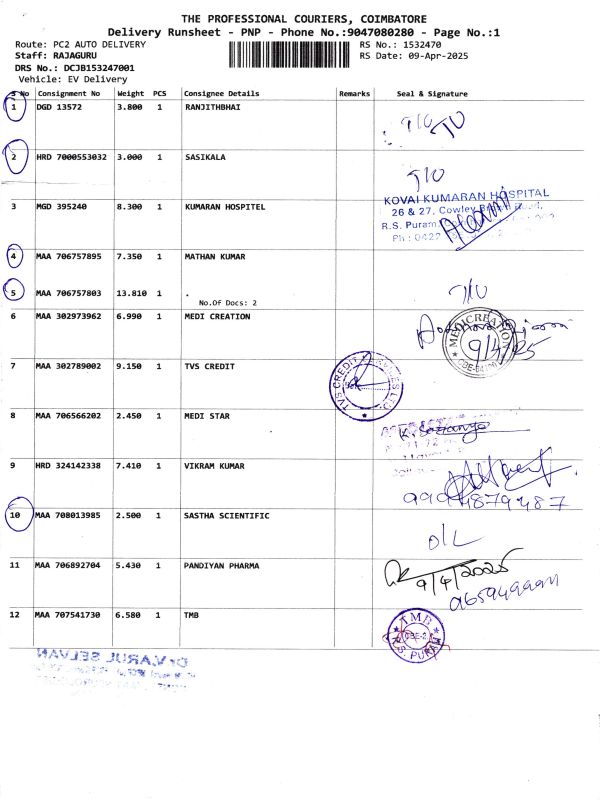 THE PROFESSIONAL COURIERS, COIMBATORE
Delivery Runsheet - PNP - Phone No.:9047080280 - Page No.:1
Route: PC2 AUTO DELIVERY RS No.: 1532470
Staff: RAJAGURU RS Date: 09-Apr-2025
DRS No.: DCJB153247001
Vehicle: EV Delivery
S No Consignment No Weight PCS Consignee Details Remarks Seal & Signature
1 DGD 13572 3.800 1 RANJITHBHAI
2 HRD 7000553032 3.000 1 SASIKALA
3 MGD 395240 8.300 1 KUMARAN HOSPITEL
KOVAI KUMARAN HOSPITAL
26 & 27, Cowley
R.S. Puram,
Ph : 0422
4 MAA 706757895 7.350 1 MATHAN KUMAR
5 MAA 706757803 13.810 1 .
No.Of Docs: 2
6 MAA 302973962 6.990 1 MEDI CREATION
MEDICREATION
9/4/25
7 MAA 302789002 9.150 1 TVS CREDIT
TVS CREDIT SERVICES LTD.
8 MAA 706566202 2.450 1 MEDI STAR
9 HRD 324142338 7.410 1 VIKRAM KUMAR
10 MAA 708013985 2.500 1 SASTHA SCIENTIFIC
O/L
11 MAA 706892704 5.430 1 PANDIYAN PHARMA
9/4/2025
12 MAA 707541730 6.580 1 TMB
TMB
CBE-2
R.S. PURAM
Dr.V.ARUL SELVAN